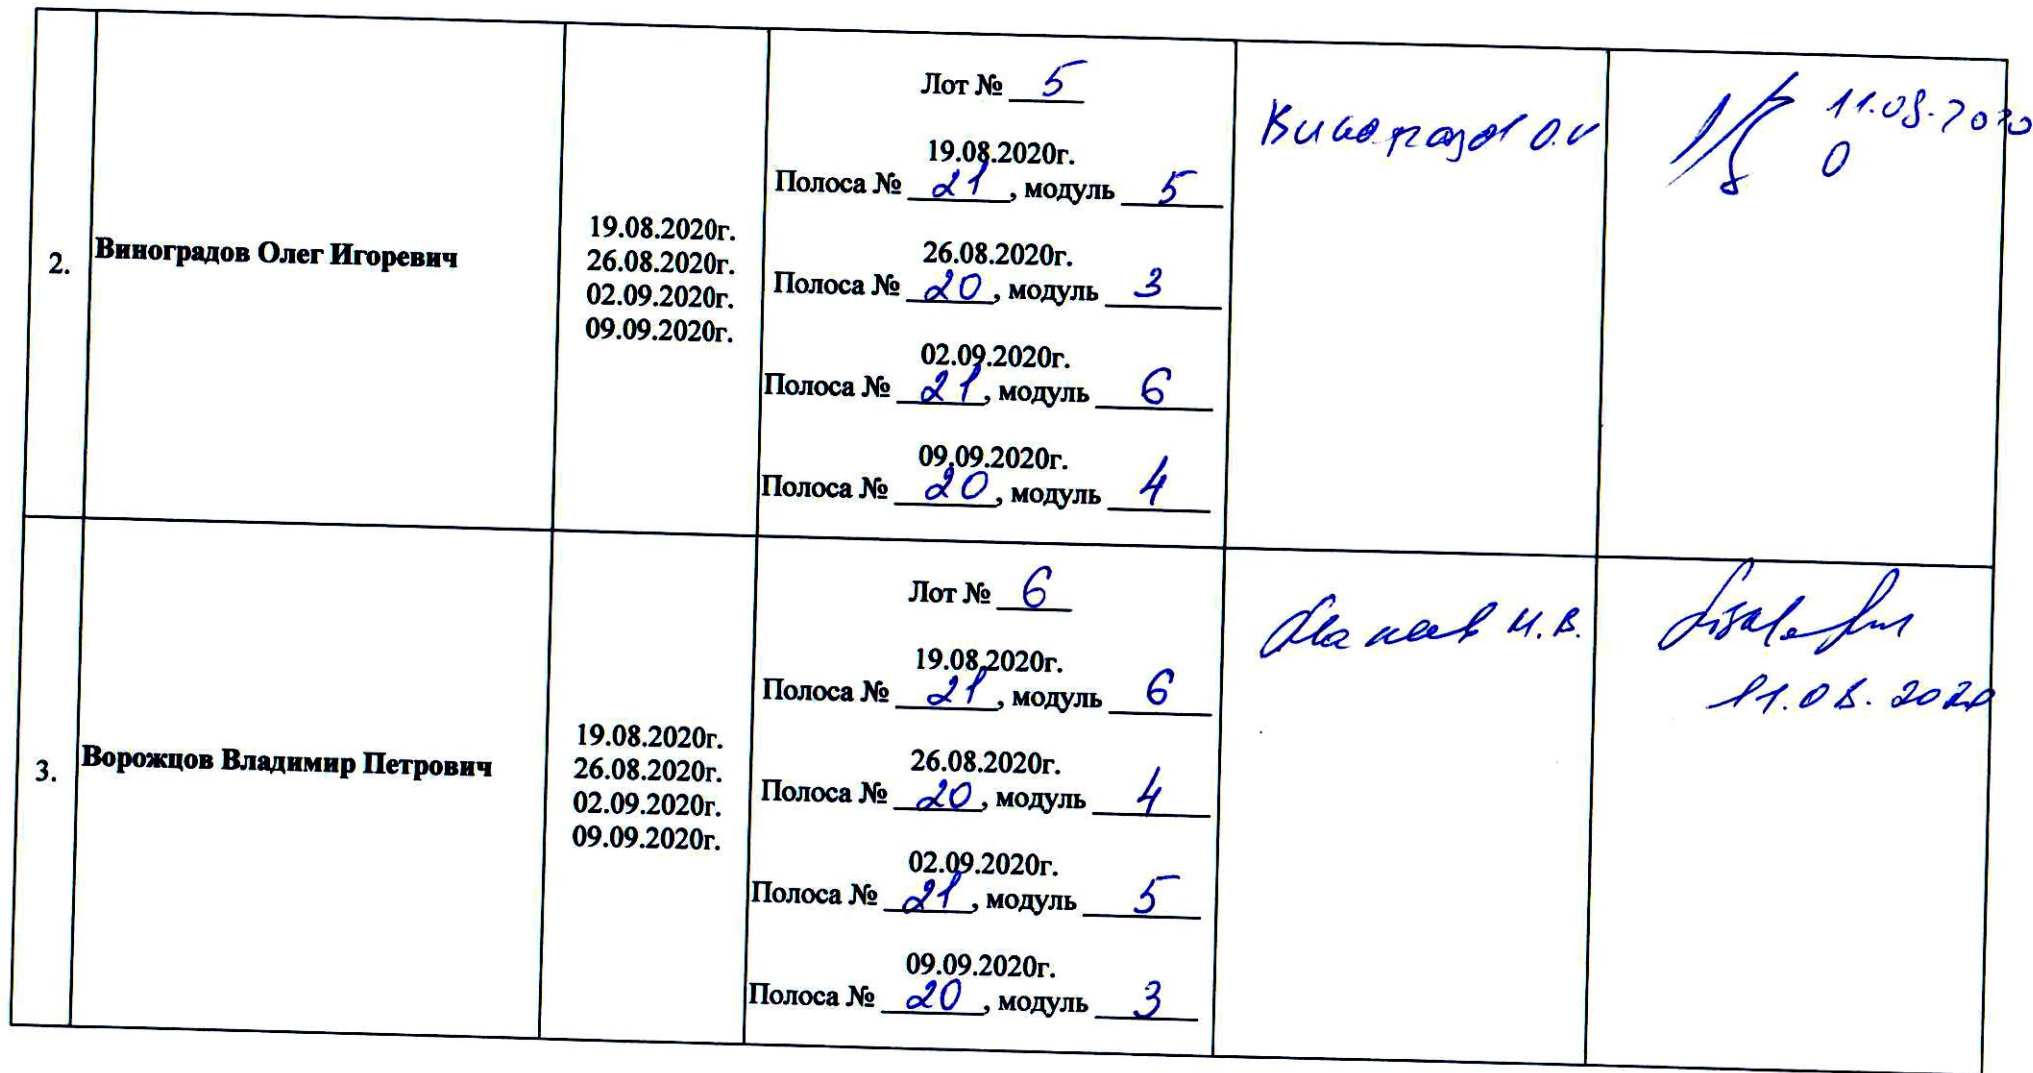 2.
Виноградов Олег Игоревич
19.08.2020г.
26.08.2020г.
02.09.2020г.
09.09.2020г.
Лот № 5
19.08.2020г.
Полоса № 21, модуль 5
26.08.2020г.
Полоса № 20, модуль 3
02.09.2020г.
Полоса № 21, модуль 6
09.09.2020г.
Полоса № 20, модуль 4
Виноградов О.И
11.08.2020
3.
Ворожцов Владимир Петрович
19.08.2020г.
26.08.2020г.
02.09.2020г.
09.09.2020г.
Лот № 6
19.08.2020г.
Полоса № 21, модуль 6
26.08.2020г.
Полоса № 20, модуль 4
02.09.2020г.
Полоса № 21, модуль 5
09.09.2020г.
Полоса № 20, модуль 3
11.08.2020